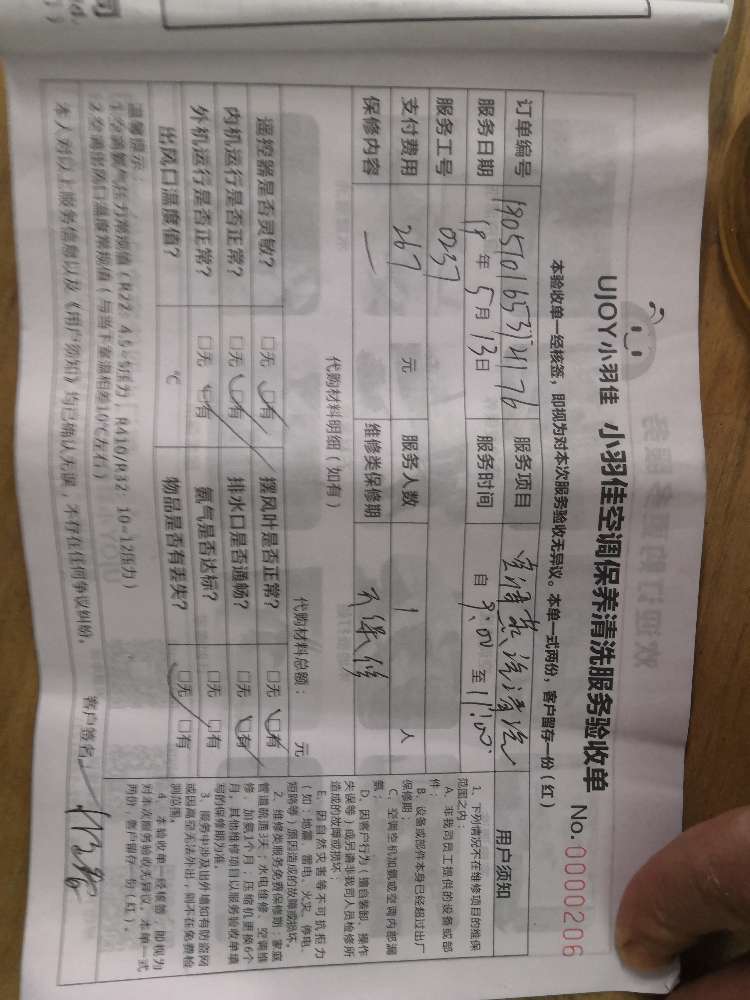 UJOY小羽佳 小羽佳空调保养清洗服务验收单
No. 0000206
本验收单一经核签，即视为对本次服务验收无异议。本单一式两份，客户留存一份（红）
订单编号 服务项目
服务日期 19 年 5 月 13 日 服务时间 自 9:00 至 11:00
服务工号 0237
支付费用 267 元 服务人数 1 人
保修内容 — 维修类保修期 不保修
代购材料明细（如有） 代购材料总额： 元
遥控器是否灵敏？ □无 □有 摆风叶是否正常？ □无 □有
内机运行是否正常？ □无 □有 排水口是否通畅？ □无 □有
外机运行是否正常？ □无 □有 氨气是否达标？ □无 □有
出风口温度值？ ℃ 物品是否有丢失？ □无 □有
温馨提示：
1.空调氟气压力常规值（R22 4.5~5压力，R410/R32 10-12压力）
2.空调出风口温度常规值（与当下室温相差10℃左右）
本人对以上服务信息以及《用户须知》均已确认无误，不存在任何争议纠纷。 客户签名
用户须知
1、下列情况不在维修项目的维保
范围之内：
A、非我司员工提供的设备或部
件；
B、设备或部件本身已经超过出厂
保修期；
C、空调空防加氨或空调内部漏
氨；
D、因客户行为（擅自装卸、操作
失误等）或另请非我司人员检修所
造成的故障或损坏；
E、因自然灾害等不可抗拒力
（如：地震、雷电、火灾、停电、
短路等）原因造成的故障或损坏。
2、维修类服务免费保修期：家庭
管道疏通3天；水电维修、空调维
修、加氨1个月；压缩机更换6个
月，其他维修项目以服务验收单填
写的保修期为准。
3、服务中涉及出外墙如有防盗网
或因高空无法外出，则不在免费检
测范围。
4、本验收单一经核签，即视为
对本次服务验收无异议，本单一式
两份，客户留存一份（红）。